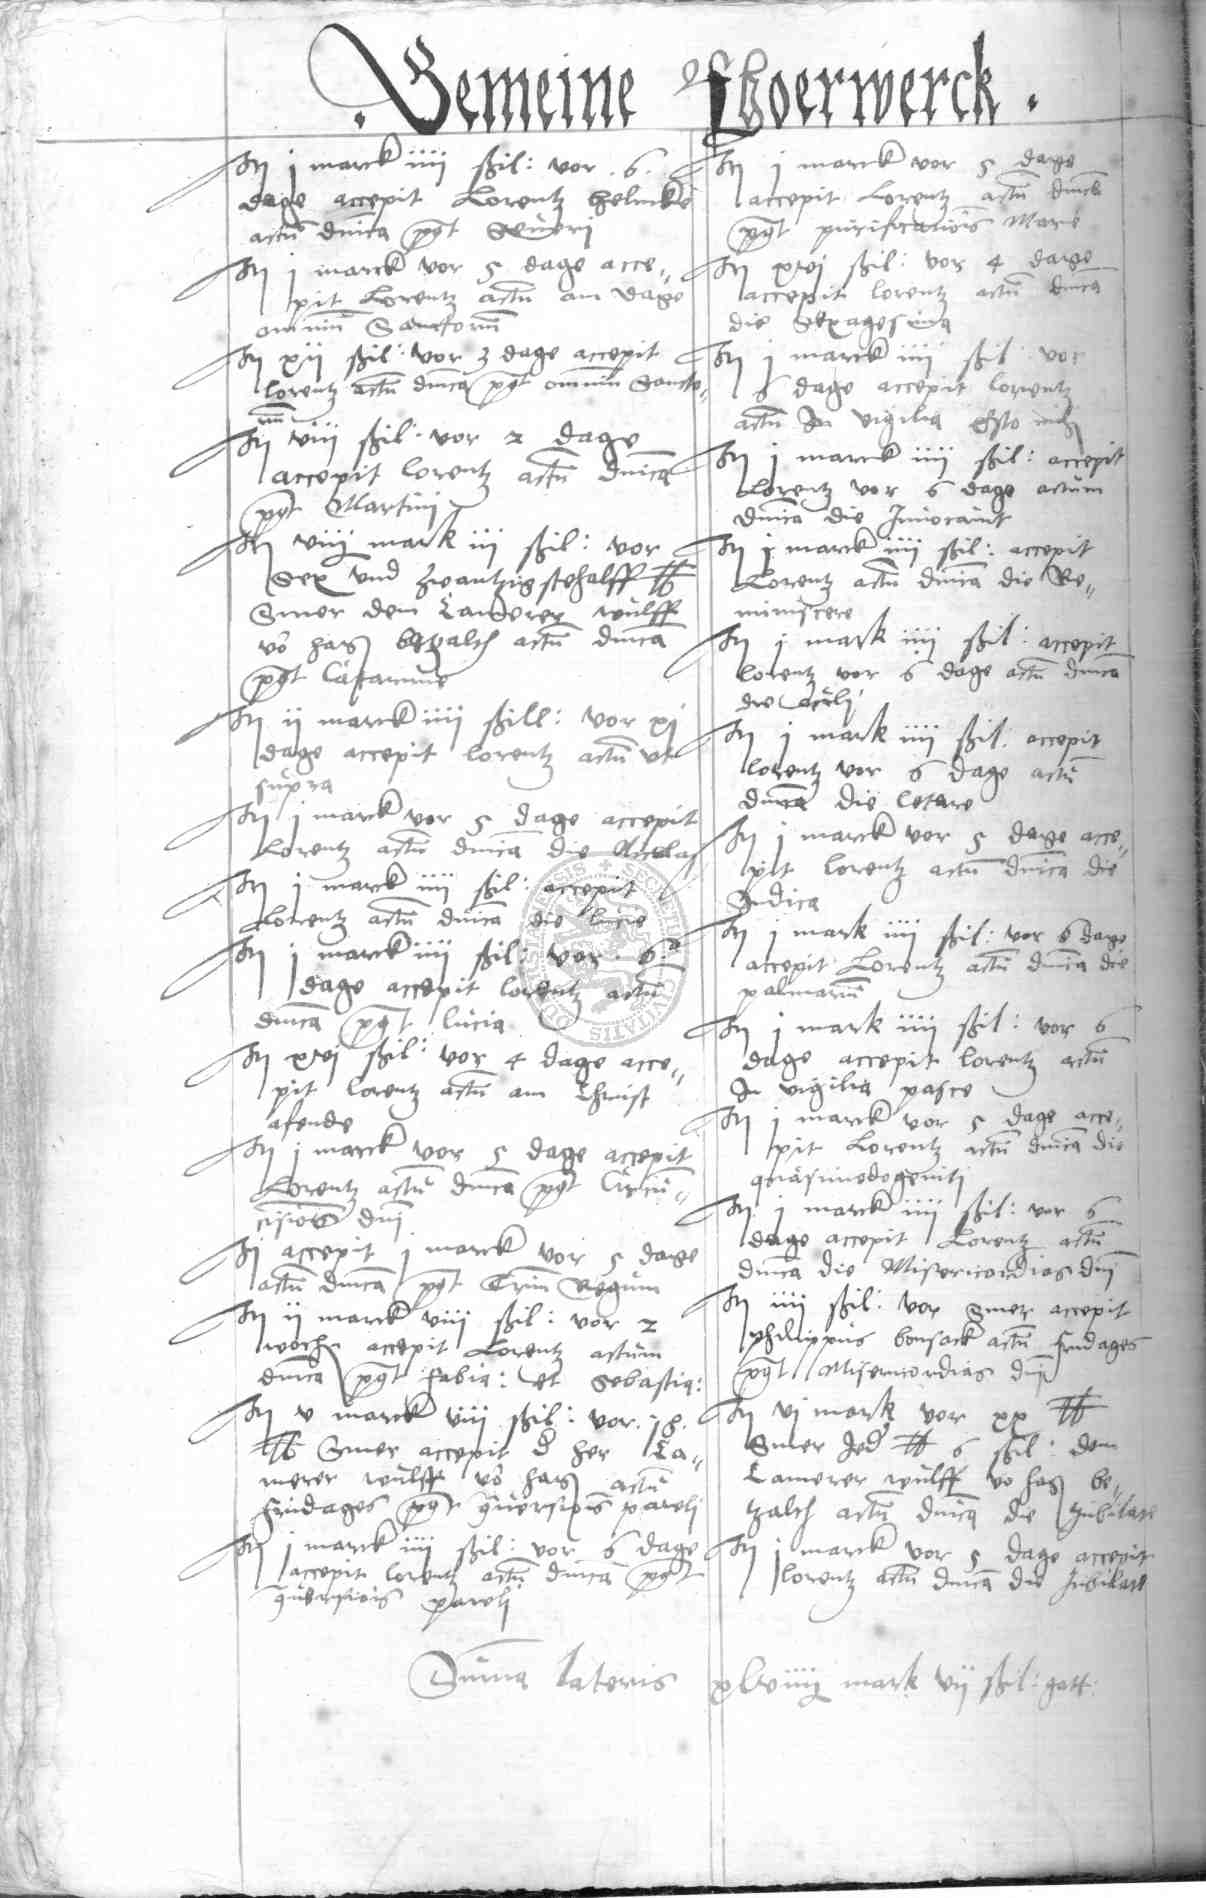 . Gemeine Fhoerwerck .
It j marck iiij ßil: vor . 6 .
dage accepit Lorentz helmke
actū dnīca pꝯt Seueri
It j marck vor 5 dage acce„
pit Lorentz actū am dage
omniū Sanctorū
It xij ßil: vor 3 dage accepit
Lorentz actū dnīca pꝯt omniū Sancto„
rū
It viij ßil: vor 2 dage
accepit lorentz actū dnīca
pꝯt Martini
It viiij mark iij ßil: vor
Sex vnd zwantzigstehalff ℔
Smer dem Camerer wulff
vō haß bezalth actū dnīca
pꝯt Catarine
It ij marck iiij ßill: vor xj
dage accepit lorentz actū vt
supra
It j marck vor 5 dage accepit
Lorentz actū dnīca die Nicolaj
It j marck iiij ßil: accepit
Lorentz actū dnīca die lucie
It j marck iiij ßil: vor . 6 .
dage accepit lorentz actū
dnīca pꝯt lucia
It xvj ßil: vor 4 dage acce„
pit lorentz actū am Christ
afende
It j marck vor 5 dage accepit
Lorentz actū dnīca pꝯt Circū„
cisionis dnī
It accepit j marck vor 5 dage
actū dnīca pꝯt Triū Regum
It ij marck viij ßil: vor 2
woch accepit Lorentz actum
dnīca pꝯt fabia: et Sebastia:
It v marck viij ßil: vor .
℔ Smer accepit d her Ca„
merer wulff vō haß actū
frudages pꝯt ꝯuersionis pauli
It j marck iiij ßil: vor 6 dage
accepit lorentz actū dnīca pꝯt
ꝯuersiois pauli
It j marck vor 5 dage
accepit Lorentz actū dnīca
pꝯt purificationis Marie
It xvj ßil: vor 4 dage
accepit lorentz actū dnīca
die Sexagesima
It j marck iiij ßil: vor
6 dage accepit lorentz
actū In vigilia Esto michi
It j marck iiij ßil: accepit
Lorentz vor 6 dage actum
dnīca die Innocauit
It j marck iiij ßil: accepit
Lorentz actū dnīca die Re„
miniscere
It j mark iiij ßil: accepit
lorentz vor 6 dage actū dnīca
die oculi
It j mark iiij ßil: accepit
lorentz vor 6 dage actū
dnīca die letare
It j marck vor 5 dage acce„
pit lorentz actū dnīca die
Judica
It j mark iiij ßil: vor 6 dage
accepit Lorentz actū dnīca die
palmarū
It j mark iiij ßil: vor 6
dage accepit lorentz actū
In vigilia pasce
It j marck vor 5 dage acce„
pit Lorentz actū dnīca die
quasimodogeniti
It j marck iiij ßil: vor 6
dage accepit Lorentz actū
dnīca die Misericordias dnī
It iiij ßil: vor Smer accepit
philippus bonsack actū frudages
pꝯt Misericordias dnī
It vj mark vor xx ℔
Smer Jed ℔ 6 ßil: dem
Camerer wulff vō haß be„
tzalth actū dnīca die Jubilate
It j marck vor 5 dage accepit
lorentz actū dnīca die Jubilate
Suma lateris xlviiij mark vij ßil: gott:
SECRETUM CIVITATIS